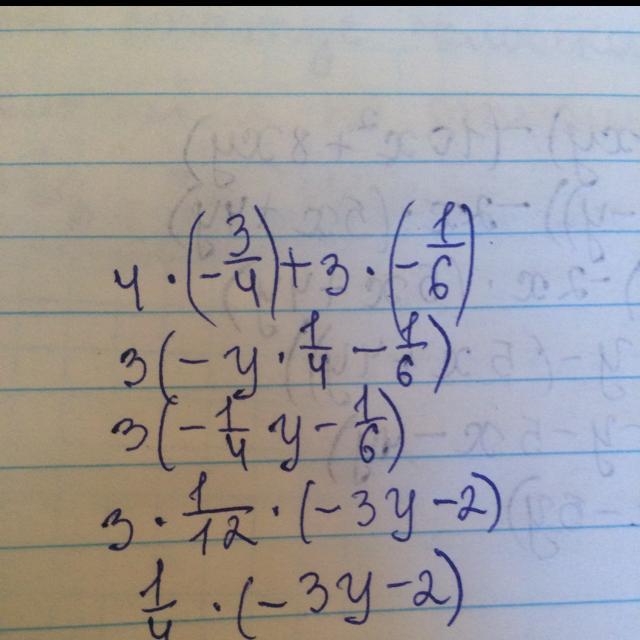 4 · (-3/4) + 3 · (-1/6)
3(-y · 1/4 - 1/6)
3(-1/4 y - 1/6)
3 · 1/12 · (-3y - 2)
1/4 · (-3y - 2)